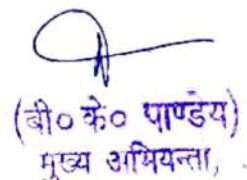 (बी० के० पाण्डेय)
मुख्य अभियन्ता,